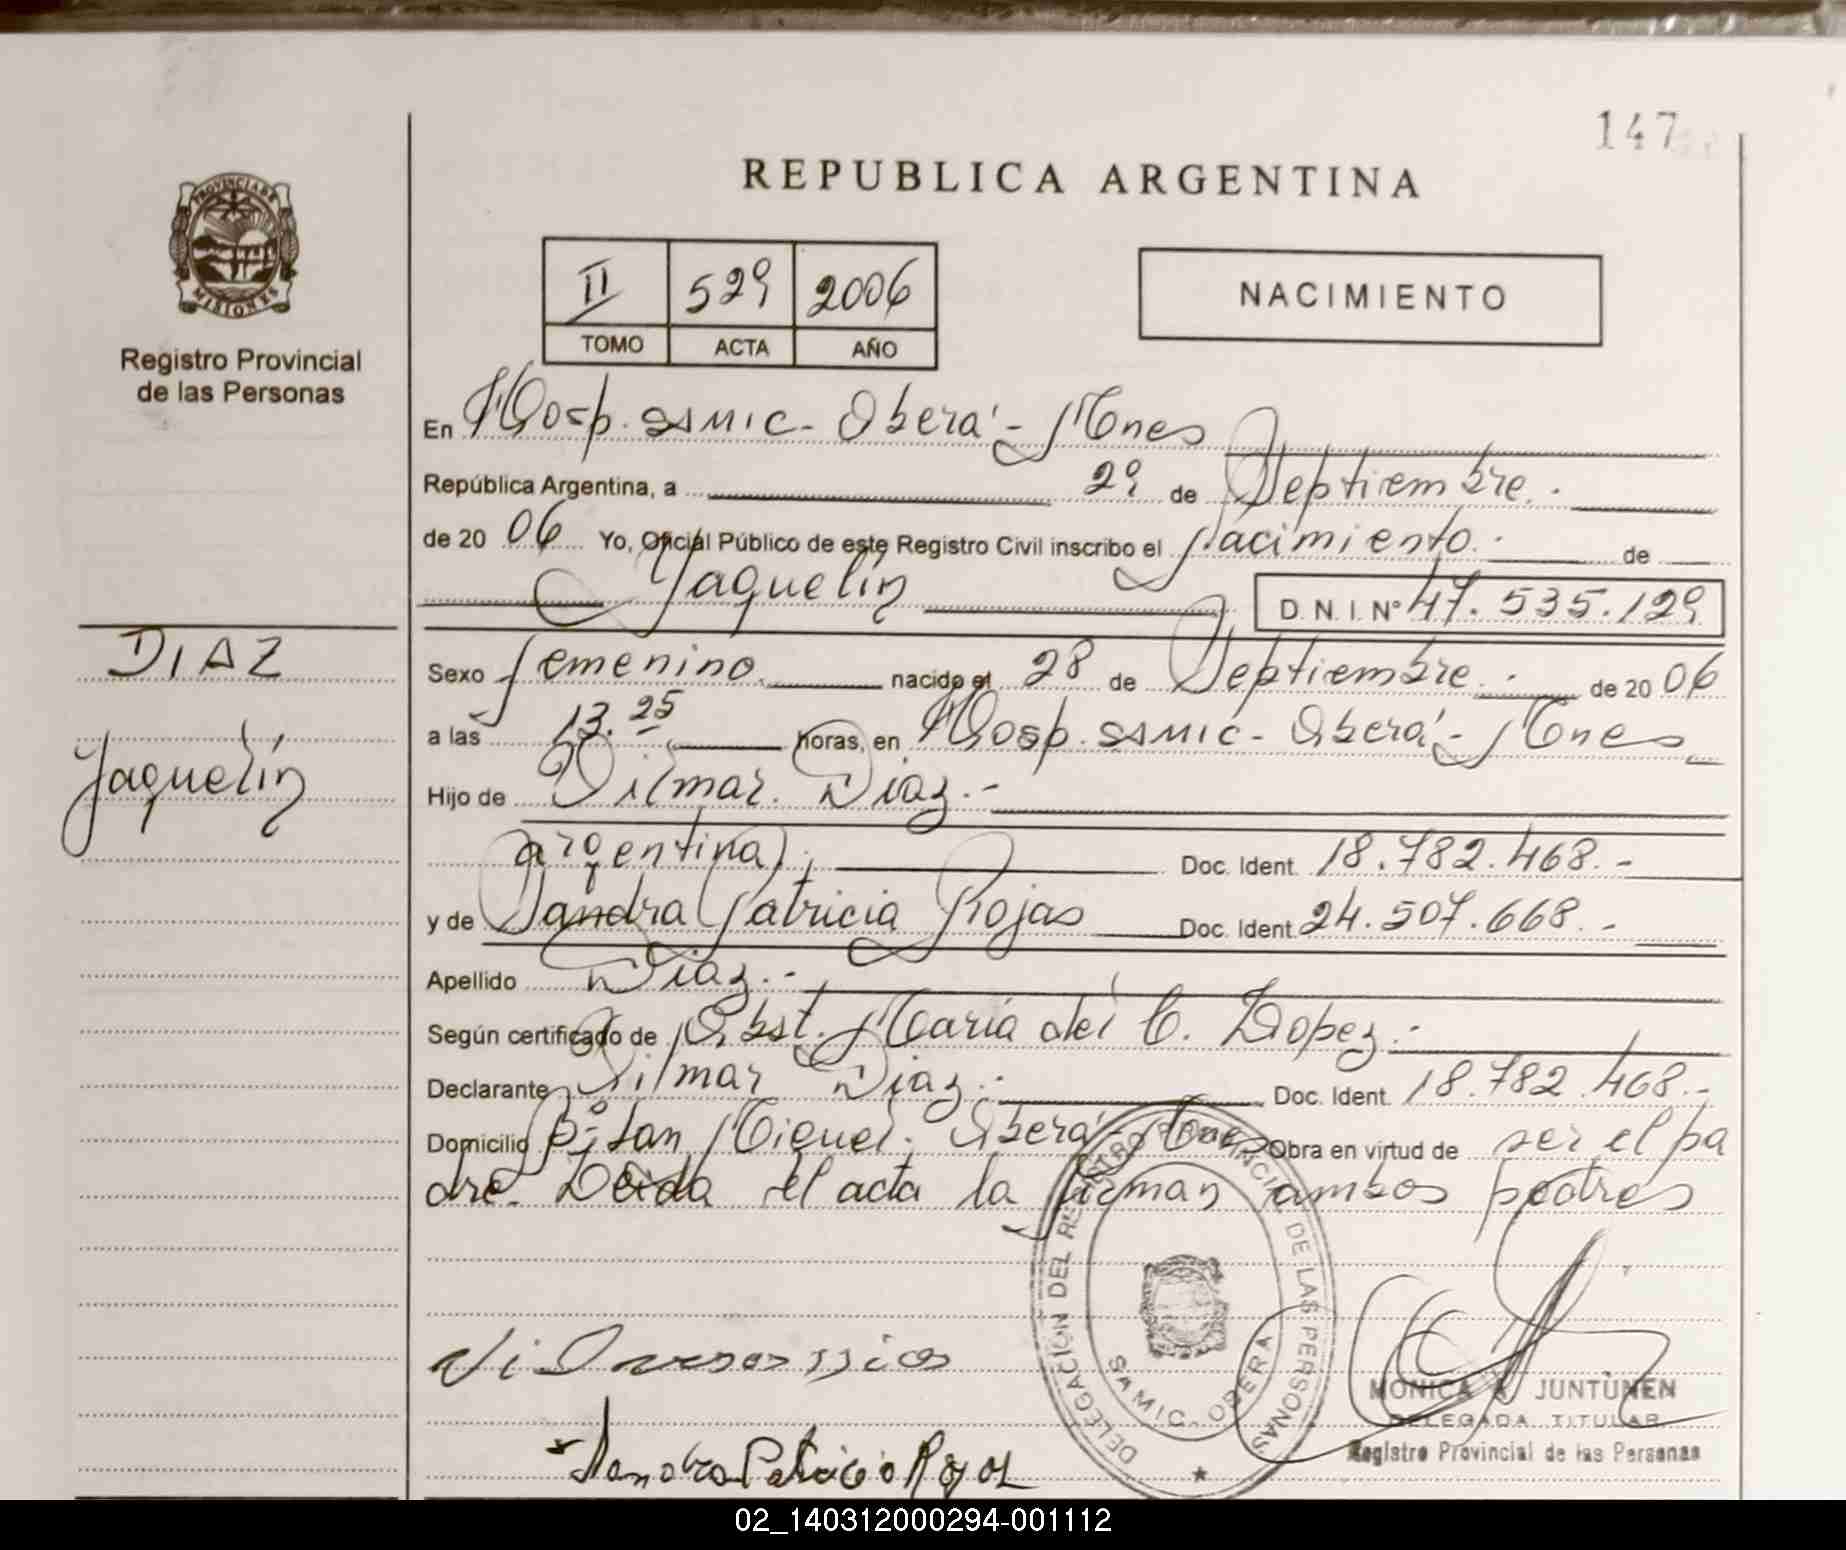 147
REPUBLICA ARGENTINA
PROVINCIA DE MISIONES
Registro Provincial
de las Personas
II 529 2006
TOMO ACTA AÑO
NACIMIENTO
En Hosp. SAMIC - Oberá - Mnes
República Argentina, a 29 de Septiembre.-
de 20 06 Yo, Oficial Público de este Registro Civil inscribo el Nacimiento.- de
Jaquelín D. N. I. Nº 47.535.129
DIAZ
Jaquelín
Sexo femenino. nacido el 28 de Septiembre.- de 20 06
a las 13.25 horas, en Hosp. SAMIC - Oberá - Mnes
Hijo de Dilmar Diaz.-
argentina), Doc. Ident. 18.782.468.-
y de Sandra Patricia Rojas Doc. Ident. 24.507.668.-
Apellido Diaz.-
Según certificado de Obst. María del C. Lopez.-
Declarante Dilmar Diaz.- Doc. Ident. 18.782.468.-
Domicilio Bº San Miguel. Oberá - Mnes Obra en virtud de ser el pa
dre. Leída el acta la firman ambos padres
Sandra Patricia Rojas
DELEGACIÓN DEL REGISTRO PROVINCIAL DE LAS PERSONAS
SAMIC - OBERA
MONICA A. JUNTUNEN
DELEGADA TITULAR
Registro Provincial de las Personas
02_140312000294-001112